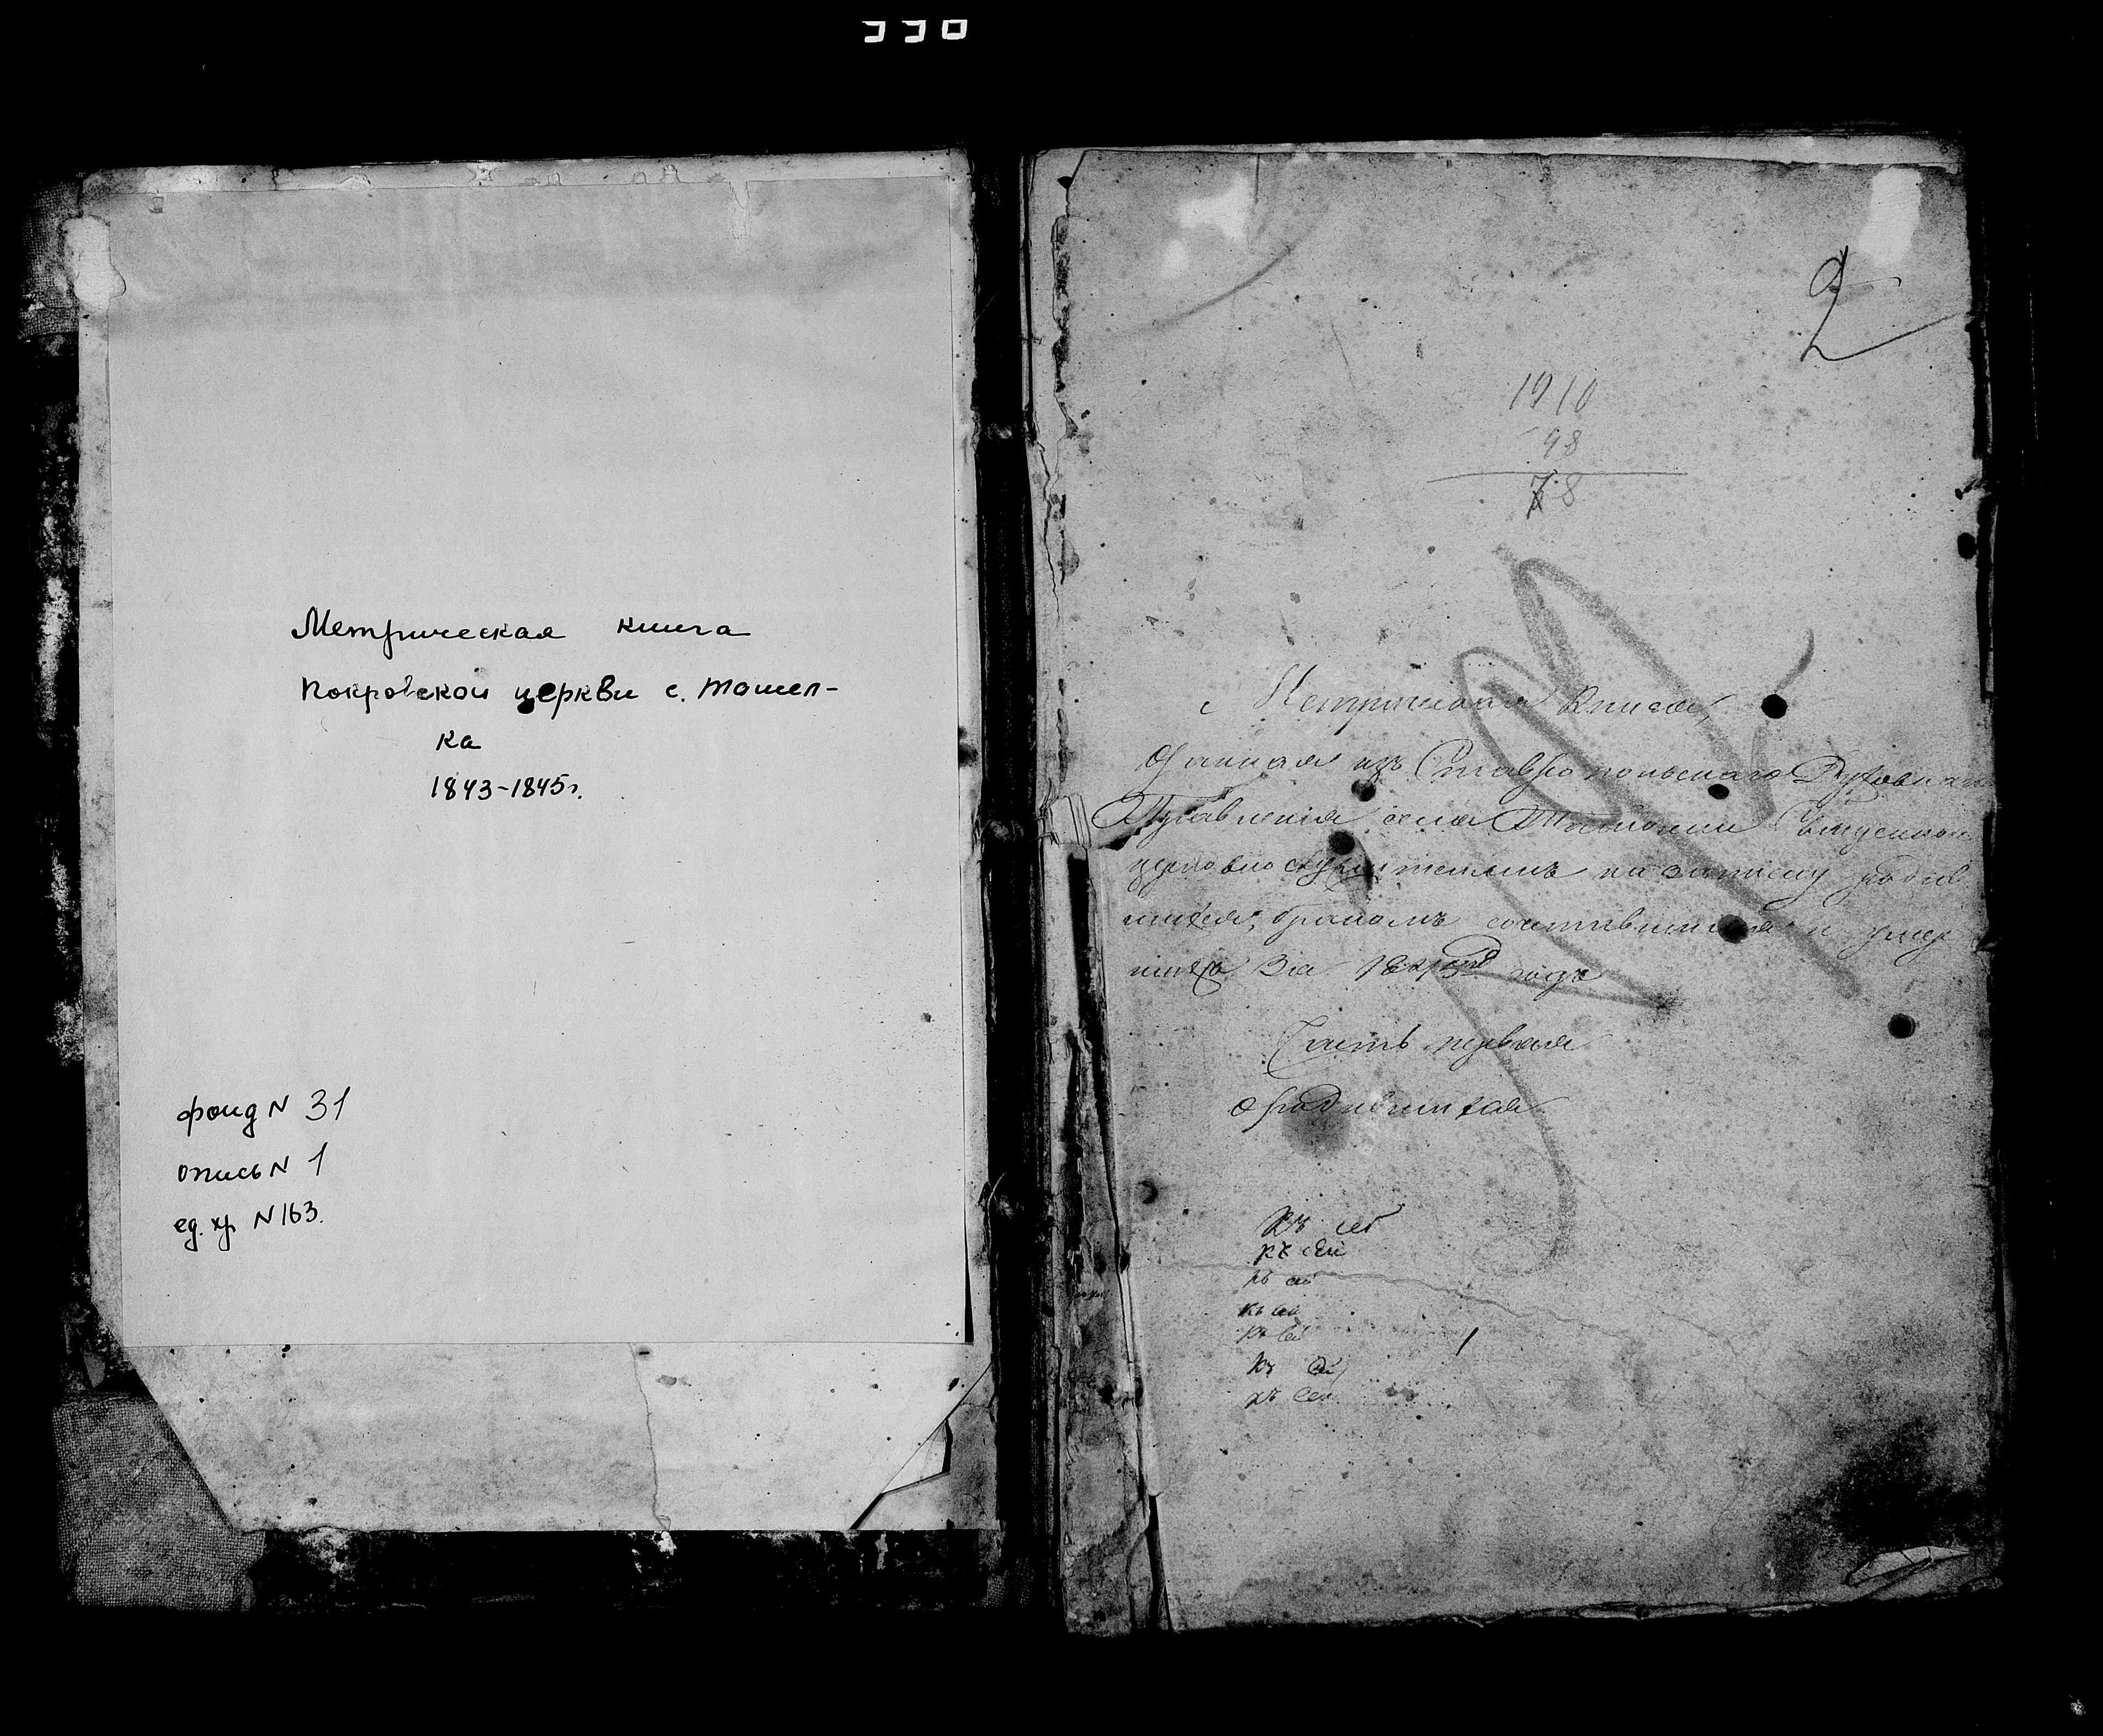 330
Метрическая книга
Покровской церкви с. Ташел-
ка
1843-1845г.
фонд N 31
опись N 1
ед. хр. N 163.
2
1910
98
78
Метрическая Книга,
данная изъ Ставропольскаго Духовнаго
Правления села
церковнослужителямъ на записку родив
шихся, бракомъ сочетавшихся и умер
шихъ За 1843й годъ
Часть первая
о родившихся
Къ
къ
къ
къ
къ
Къ
къ